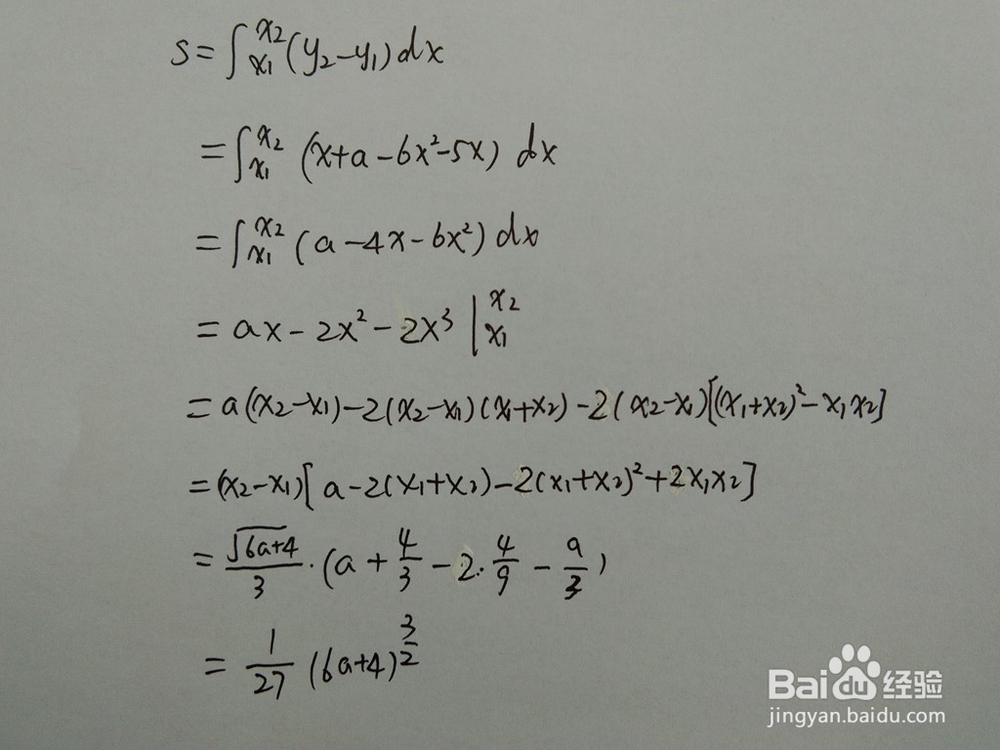 S=∫_{x1}^{x2}(y₂-y₁)dx
=∫_{x1}^{x2}(x+a-6x²-5x) dx
=∫_{x1}^{x2}(a-4x-6x²)dx
=ax-2x²-2x³|_{x1}^{x2}
=a(x₂-x₁)-2(x₂-x₁)(x₁+x₂)-2(x₂-x₁)[(x₁+x₂)²-x₁x₂]
=(x₂-x₁)[a-2(x₁+x₂)-2(x₁+x₂)²+2x₁x₂]
=\frac{\sqrt{6a+4}}{3}·(a+\frac{4}{3}-2·\frac{4}{9}-\frac{a}{3})
=\frac{1}{27}(6a+4)^{\frac{3}{2}}
Baidu 经验
jingyan.baidu.com